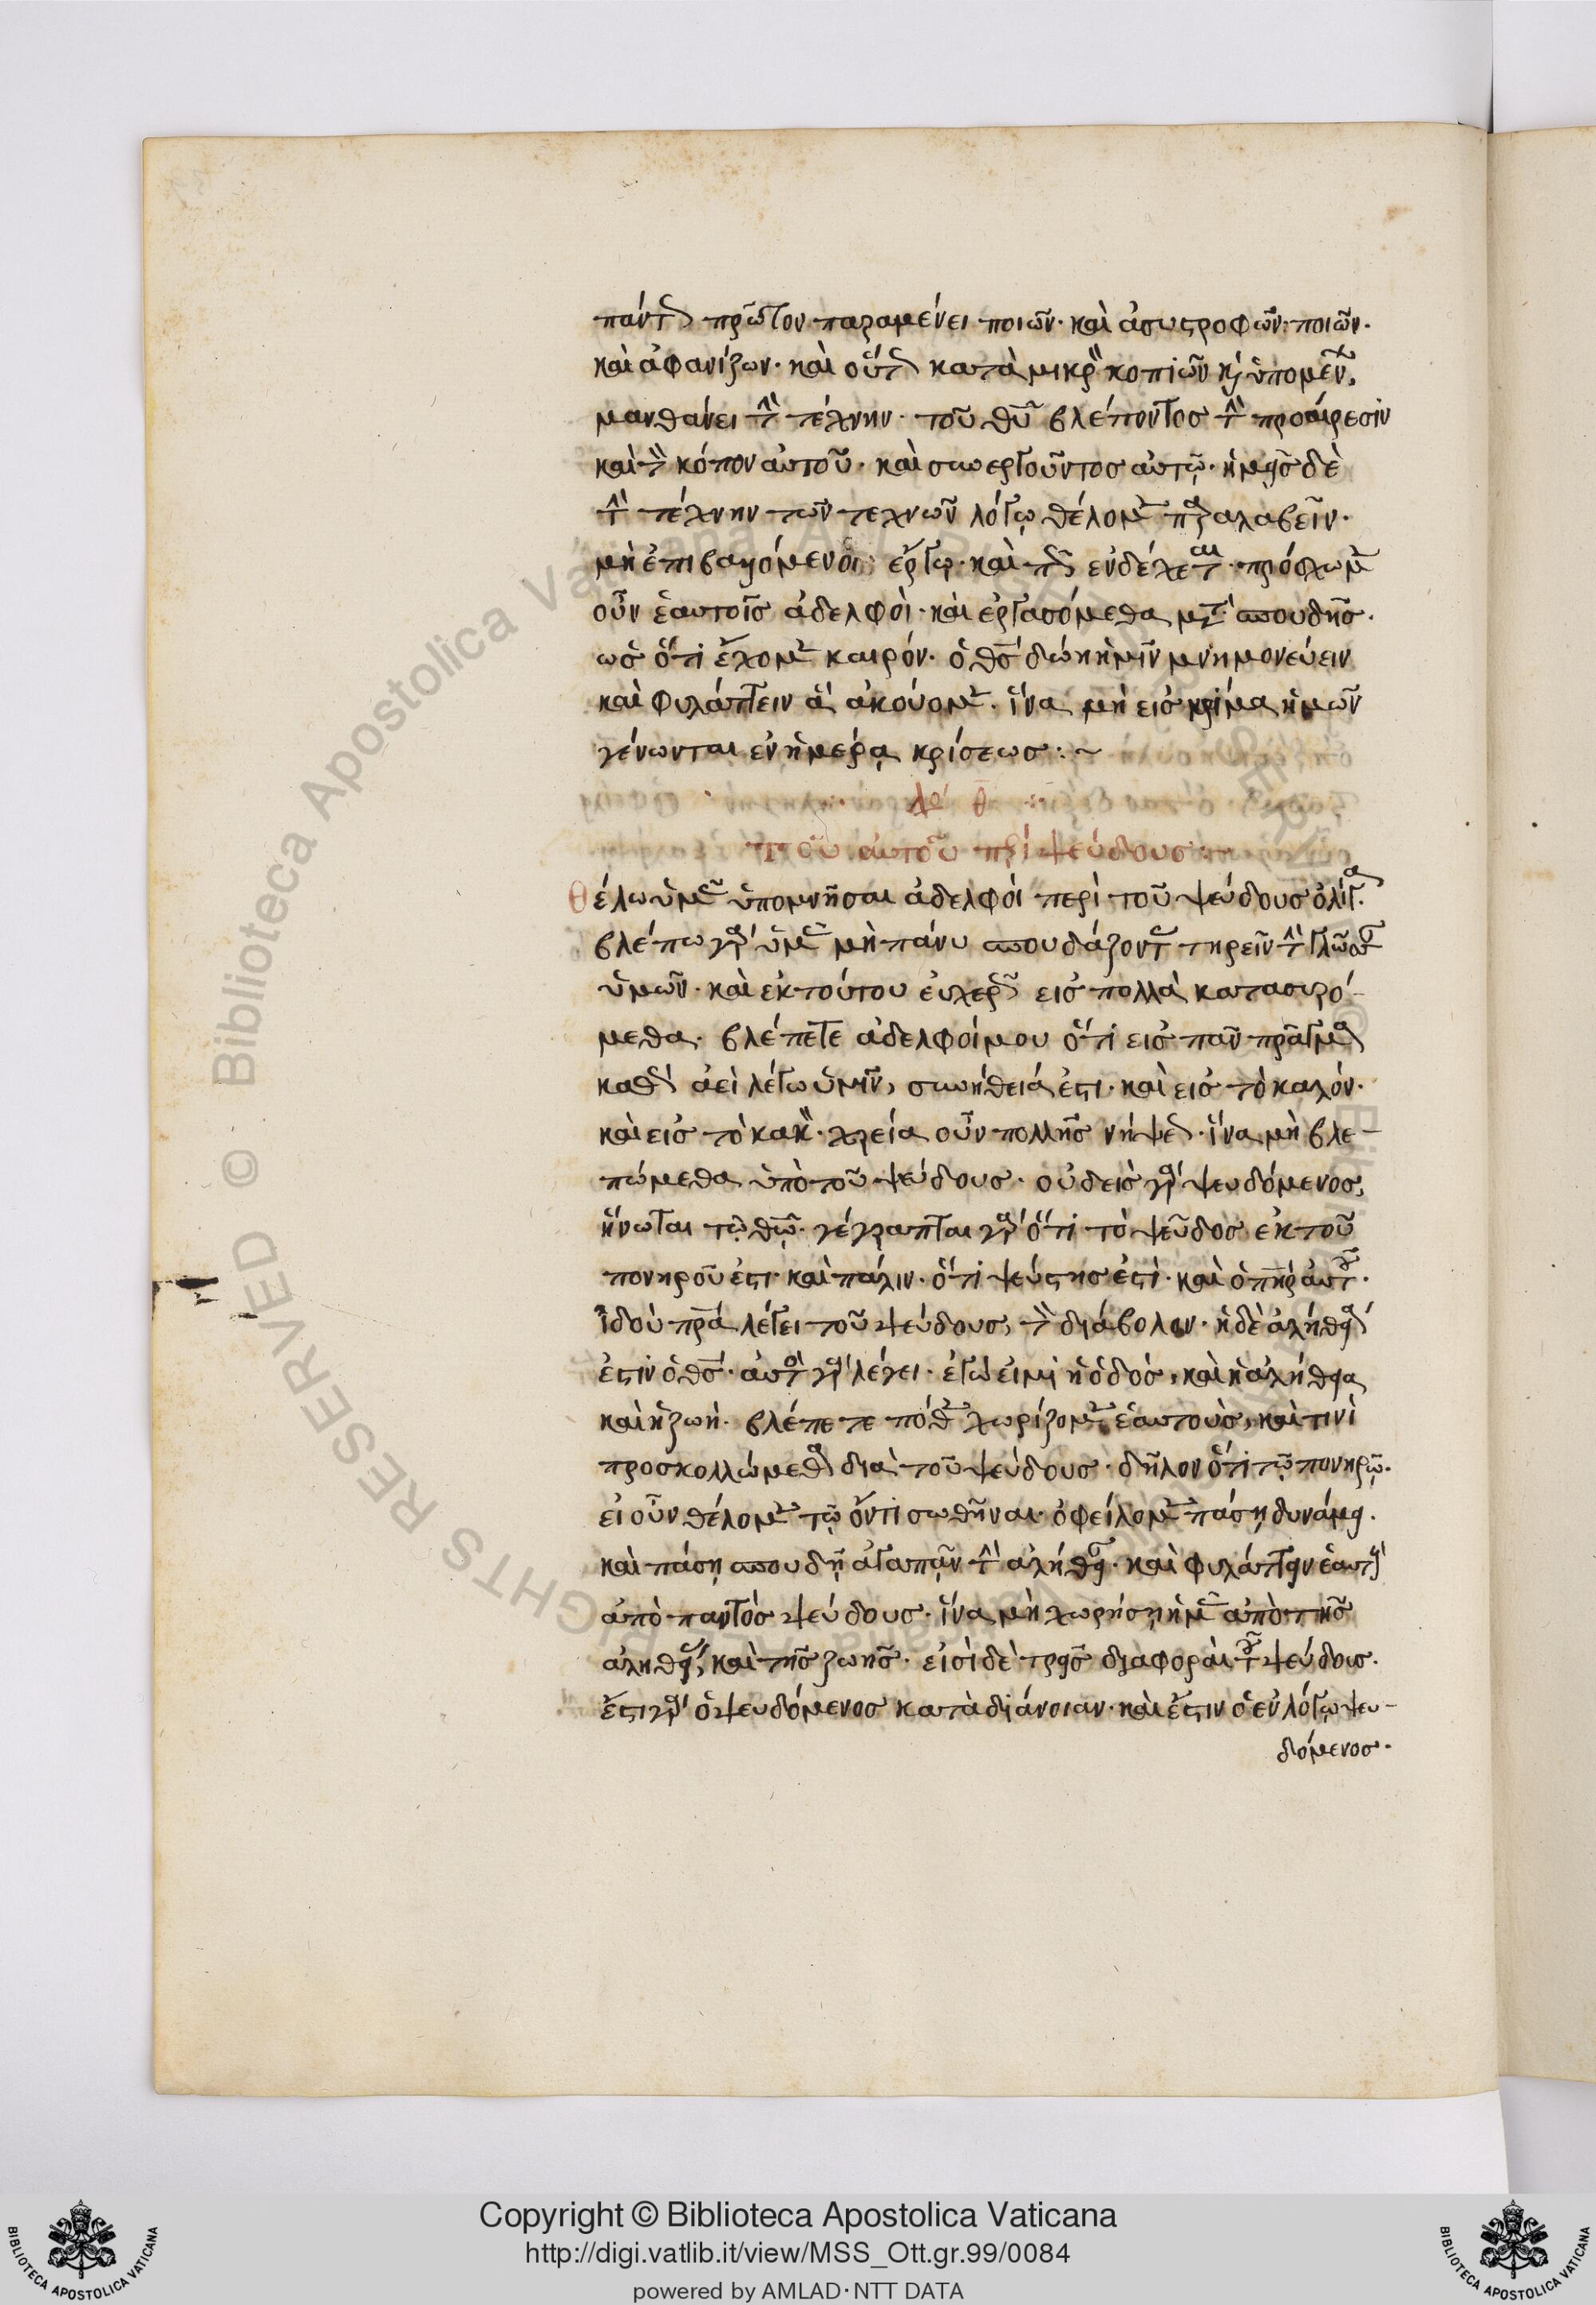 πάντως πρῶτον παραμένει ποιῶν· καὶ ἀσυστροφῶν· ποιῶν·
καὶ ἀφανίζων· καὶ οὕτως κατὰ μικρὸν κοπιῶν καὶ ὑπομένων,
μανθάνει τὴν τέχνην· τοῦ θυ βλέποντος τὴν προαίρεσιν
καὶ τὸν κόπον αὐτοῦ· καὶ συνεργοῦντος αὐτῷ· ἡμεῖς δὲ
τὴν τέχνην τῶν τεχνῶν λόγῳ θέλομεν παραλαβεῖν·
μὴ ἐπιβαλλόμενοι ἔργῳ· καὶ πῶς ἐνδέχεται· πρόσχωμεν
οὖν ἑαυτοῖς ἀδελφοὶ· καὶ ἐργασόμεθα μετὰ σπουδῆς·
ὡς ὅτι ἔχομεν καιρόν· ὁ θς δώη ἡμῖν μνημονεύειν
καὶ φυλάττειν ἃ ἀκούομεν· ἵνα μὴ εἰς κρίμα ἡμῶν
γένωνται ἐν ἡμέρᾳ κρίσεως :~
λό θ
Τοῦ αὐτοῦ περὶ ψεύδους
Θέλω ὑμᾶς ὑπομνῆσαι ἀδελφοὶ περὶ τοῦ ψεύδους ὀλίγα·
βλέπω γὰρ ὑμᾶς μὴ πάνυ σπουδάζοντας τηρεῖν τὴν γλῶσσαν
ὑμῶν· καὶ ἐκ τούτου εὐχερῶς εἰς πολλὰ κατασυρό-
μεθα· βλέπετε ἀδελφοί μου ὅτι εἰς πᾶν πρᾶγμα
καθὼς ἀεὶ λέγω ὑμῖν, συνήθειά ἐστι· καὶ εἰς τὸ καλόν·
καὶ εἰς τὸ κακόν· χρεία οὖν πολλῆς νήψεως· ἵνα μὴ βλε-
πώμεθα ὑπὸ τοῦ ψεύδους· οὐδεὶς γὰρ ψευδόμενος,
ἥνωται τῷ θῷ· γέγραπται γὰρ ὅτι τὸ ψεῦδος ἐκ τοῦ
πονηροῦ ἐστι· καὶ πάλιν· ὅτι ψεύστης ἐστὶ· καὶ ὁ πηρ αὐτοῦ·
ἰδοὺ πρα λέγει τοῦ ψεύδους, τὸν διάβολον· ἡ δὲ ἀλήθεια
ἐστιν ὁ θς· αὐτὸς γὰρ λέγει· ἐγώ εἰμι ἡ ὁδός, καὶ ἡ ἀλήθεια
καὶ ἡ ζωή· βλέπετε πόθεν χωρίζομεν ἑαυτοὺς, καὶ τινὶ
προσκολλώμεθα διὰ τοῦ ψεύδους· δῆλον ὅτι τῷ πονηρῷ·
εἰ οὖν θέλομεν τῷ ὄντι σωθῆναι· ὀφείλομεν πάσῃ δυνάμει·
καὶ πάσῃ σπουδῇ ἀγαπᾶν τὴν ἀλήθειαν· καὶ φυλάττειν ἑαυτοὺς
ἀπὸ παντὸς ψεύδους· ἵνα μὴ χωρήσῃ ἡμᾶς ἀπὸ τῆς
ἀληθείας, καὶ τῆς ζωῆς· εἰσὶ δὲ τρεῖς διαφοραὶ τοῦ ψεύδους·
ἔστι γὰρ ὁ ψευδόμενος κατὰ διάνοιαν· καὶ ἔστιν ὁ ἐν λόγῳ ψευ-
δόμενος·
Copyright © Biblioteca Apostolica Vaticana
http://digi.vatlib.it/view/MSS_Ott.gr.99/0084
powered by AMLAD·NTT DATA
BIBLIOTECA APOSTOLICA VATICANA
BIBLIOTECA APOSTOLICA VATICANA